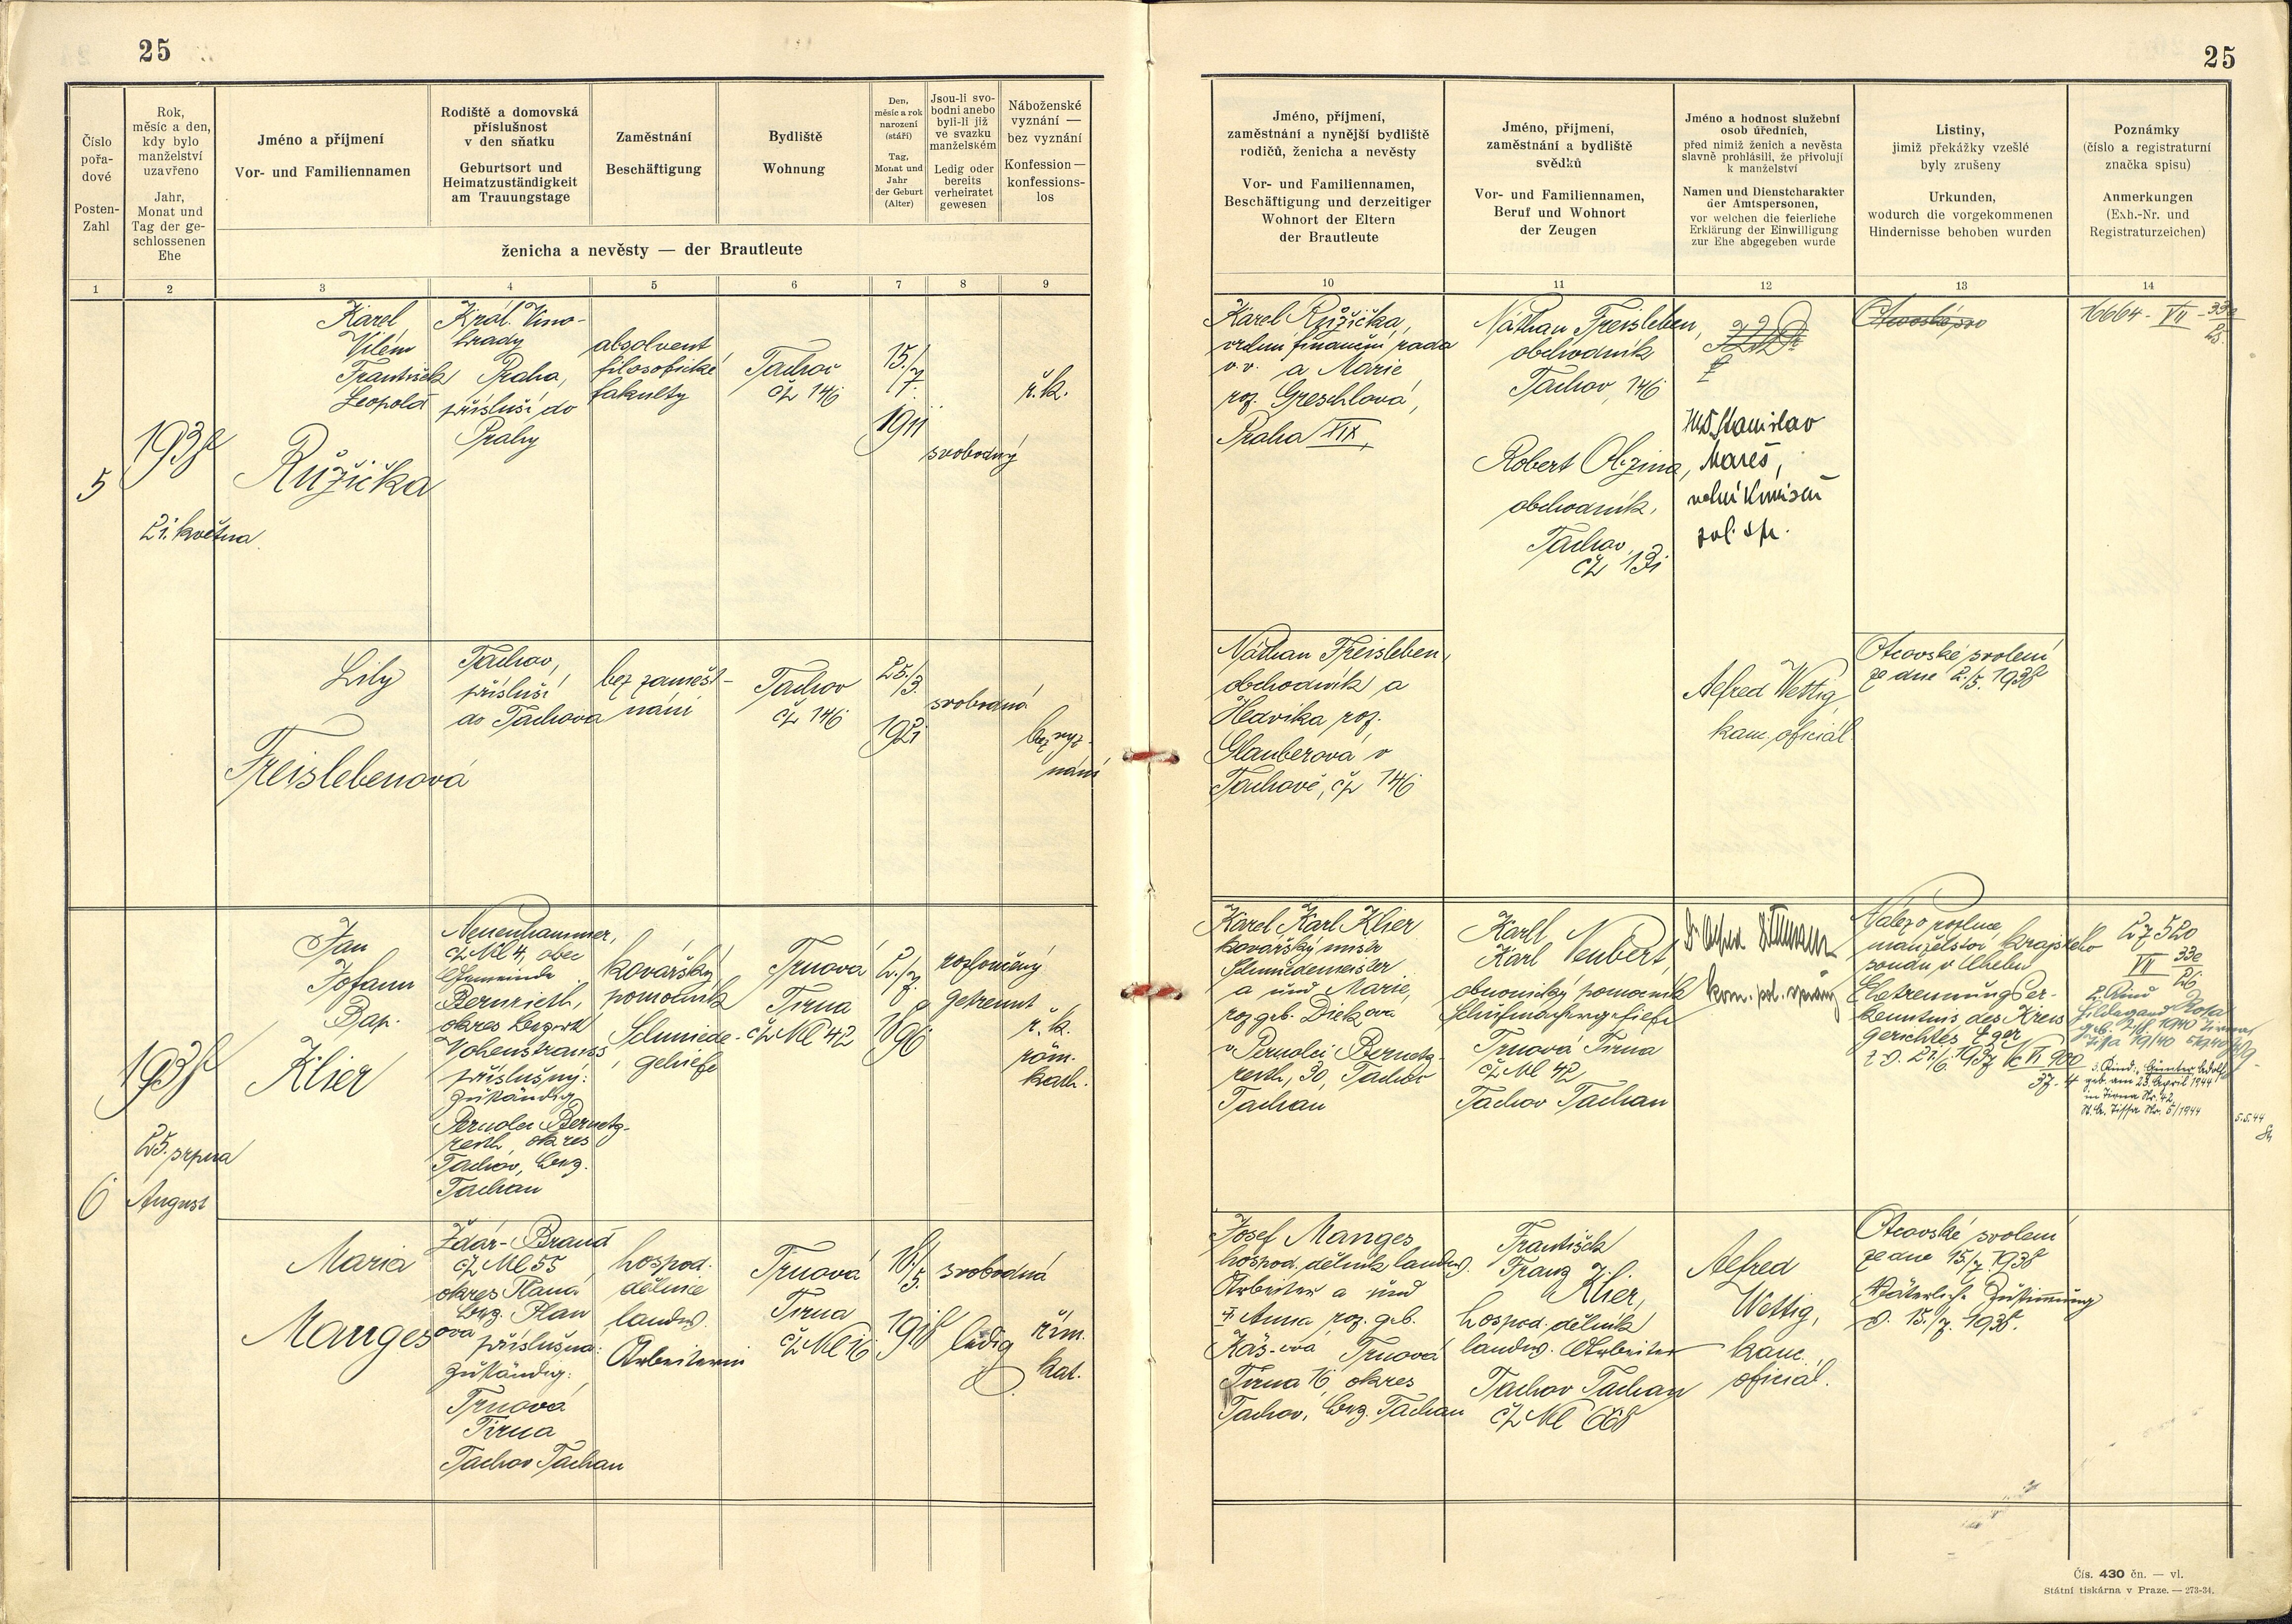 25
25
Číslo
pořa-
dové
Posten-
Zahl
Rok,
měsíc a den,
kdy bylo
manželství
uzavřeno
Jahr,
Monat und
Tag der ge-
schlossenen
Ehe
Jméno a příjmení
Vor- und Familiennamen
Rodiště a domovská
příslušnost
v den sňatku
Geburtsort und
Heimatzuständigkeit
am Trauungstage
Zaměstnání
Beschäftigung
Bydliště
Wohnung
Den,
měsíc a rok
narození
(stáří)
Tag,
Monat und
Jahr
der Geburt
(Alter)
Jsou-li svo-
bodni anebo
byli-li již
ve svazku
manželském
Ledig oder
bereits
verheiratet
gewesen
Náboženské
vyznání —
bez vyznání
Konfession —
konfessions-
los
ženicha a nevěsty — der Brautleute
Jméno, příjmení,
zaměstnání a nynější bydliště
rodičů, ženicha a nevěsty
Vor- und Familiennamen,
Beschäftigung und derzeitiger
Wohnort der Eltern
der Brautleute
Jméno, příjmení,
zaměstnání a bydliště
svědků
Vor- und Familiennamen,
Beruf und Wohnort
der Zeugen
Jméno a hodnost služební
osob úředních,
před nimiž ženich a nevěsta
slavně prohlásili, že přivolují
k manželství
Namen und Dienstcharakter
der Amtspersonen,
vor welchen die feierliche
Erklärung der Einwilligung
zur Ehe abgegeben wurde
Listiny,
jimiž překážky vzešlé
byly zrušeny
Urkunden,
wodurch die vorgekommenen
Hindernisse behoben wurden
Poznámky
(číslo a registraturní
značka spisu)
Anmerkungen
(Exh.-Nr. und
Registraturzeichen)
1 2 3 4 5 6 7 8 9 10 11 12 13 14
5
1938
21. května
Karel
Vilém
František
Leopold
Růžička
Král. Vino-
hrady
Praha,
přísluší do
Prahy
absolvent
filosofické
fakulty
Tachov
čp 146
15./
7.
1911
svobodný
ř.k.
Karel Růžička,
vrchní finanční rada
v.v. a Marie
roz. Greschlová,
Praha XIX,
Náthan Freisleben,
obchodník
Tachov, 146
Robert Obzina,
obchodník,
Tachov,
čp 131
Stanislav
Mareš,
Otcovské svo
16664 - VII - 33e
Lily
Freislebenová
Tachov,
přísluší
do Tachova
bez zaměst-
nání
Tachov
čp 146
25./
3.
1921
svobodná
bez vyz-
nání
Náthan Freisleben,
obchodník a
Hedvika roz.
Glauberová v
Tachově, čp 146
Alfred Wettig,
kanc. oficiál
Otcovské svolení
ze dne 2./5. 1938
6
1938
25. srpna
August
Jan
Johann
Bap.
Klier
Neuenhammer,
čp Nr 4, obec
Gemeinde
Bernrieth,
okres Bezirk
Vohenstrauss
příslušný:
zuständig
Pernolec Bernetz-
reith, okres
Tachov, Bez.
Tachau
kovářský
pomocník
Schmiede-
gehilfe
Trnová
Tirna
čp Nr 42
2./
1896
rozloučený
getrennt
ř.k.
röm.
kath.
Karel Karl Klier
kovářský mistr
Schmiedemeister
a und Marie,
roz. geb. Dick ova
v Pernolci Bernetz-
reith, 30, Tachov
Tachau
Karel
Karl Neubert,
obuvnický pomocník
Schuhmachergehilfe
Trnová Tirna
čp Nr 42
Tachov Tachau
Nález o rozluce
manželství krajského
soudu v Chebu
Ehetrennungser-
kenntnis des Kreis
gerichtes Eger
z. d. 21./6. 1937
27520
VII 33e
2. Kind
Hildegard Rosa
3. Kind: Günter Adolf
geb. am 23. April 1944
in Tirna Nr. 42,
St. A. Tissa Nr. 5/1944
5.5.44
Maria
Manges
ova
Žďár - Brand
čp Nr 55
okres Planá
Bez. Plan
příslušná:
zuständig:
Trnová
Tirna
Tachov Tachau
hospod.
dělnice
landw.
Arbeiterin
Trnová
Tirna
čp Nr 16
18./
5.
1918
svobodná
ledig
řím.
kat.
Josef Manges
hospod. dělník landw.
Arbeiter a und
Anna roz. geb.
Käs-ová Trnová
Tirna 16, okres
Tachov, Bez. Tachau
František
Franz
Klier,
hospod. dělník
landw. Arbeiter
Tachov Tachau
čp Nr 668
Alfred
Wettig,
kanc.
oficiál.
Otcovské svolení
ze dne 15./7. 1938
Väterliche Zustimmung
d. 15./7. 1938.
Čís. 430 čn. — vl.
Státní tiskárna v Praze. — 273-34.